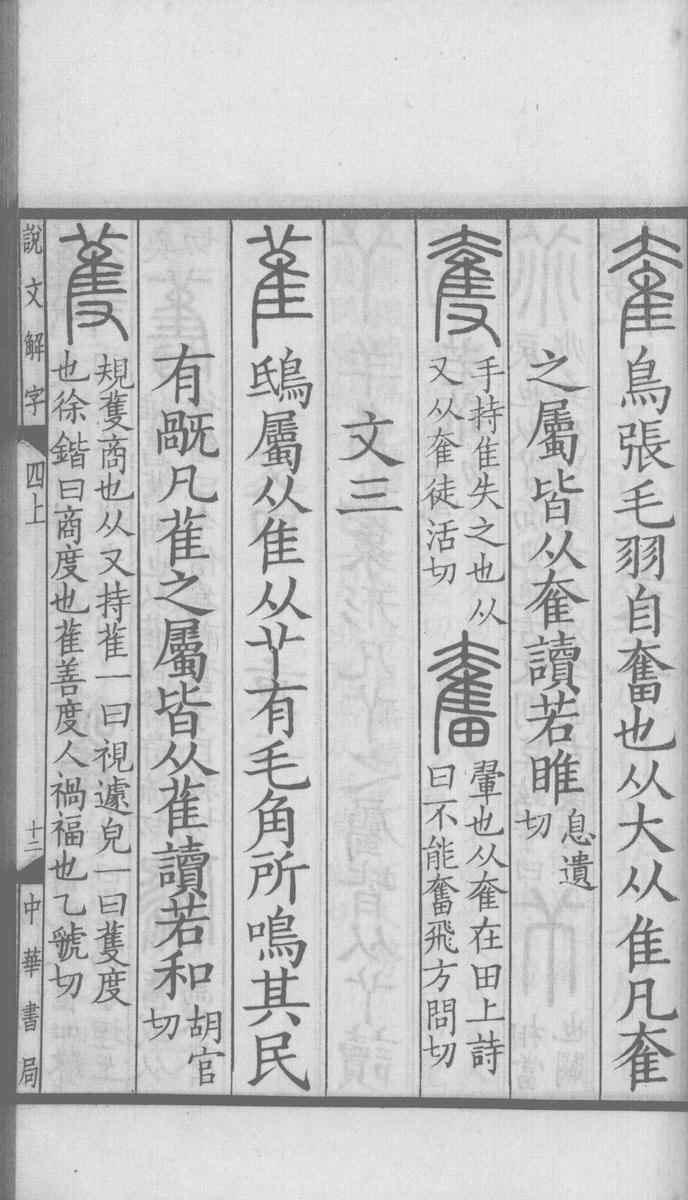 奞鳥張毛羽自奮也从大从隹凡奞
之屬皆从奞讀若睢息遺切
奪手持隹失之也从
又从奞徒活切
奮翬也从奞在田上詩
曰不能奮飛方問切
文三
雈鴟屬从隹从𦫳有毛角所鳴其民
有𫾣凡雈之屬皆从雈讀若和胡官切
蒦規蒦商也从又持雈一曰視遽皃一曰蒦度
也徐鍇曰商度也雈善度人禍福也乙虢切
說文解字
四上
十二
中華書局